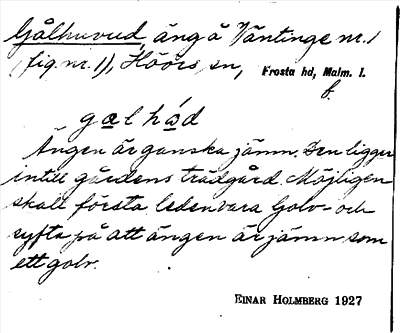 Gålhuvud, äng å Väntinge nr. 1
(fig. nr. 1), Höörs sn, Frosta hd, Malm. l.
f.
gal håd
Ängen är ganska jämn. Den ligger
intill gårdens trädgård. Möjligen
skall första leden vara Golv- och
syfta på att ängen är jämn som
ett golv.
EINAR HOLMBERG 1927